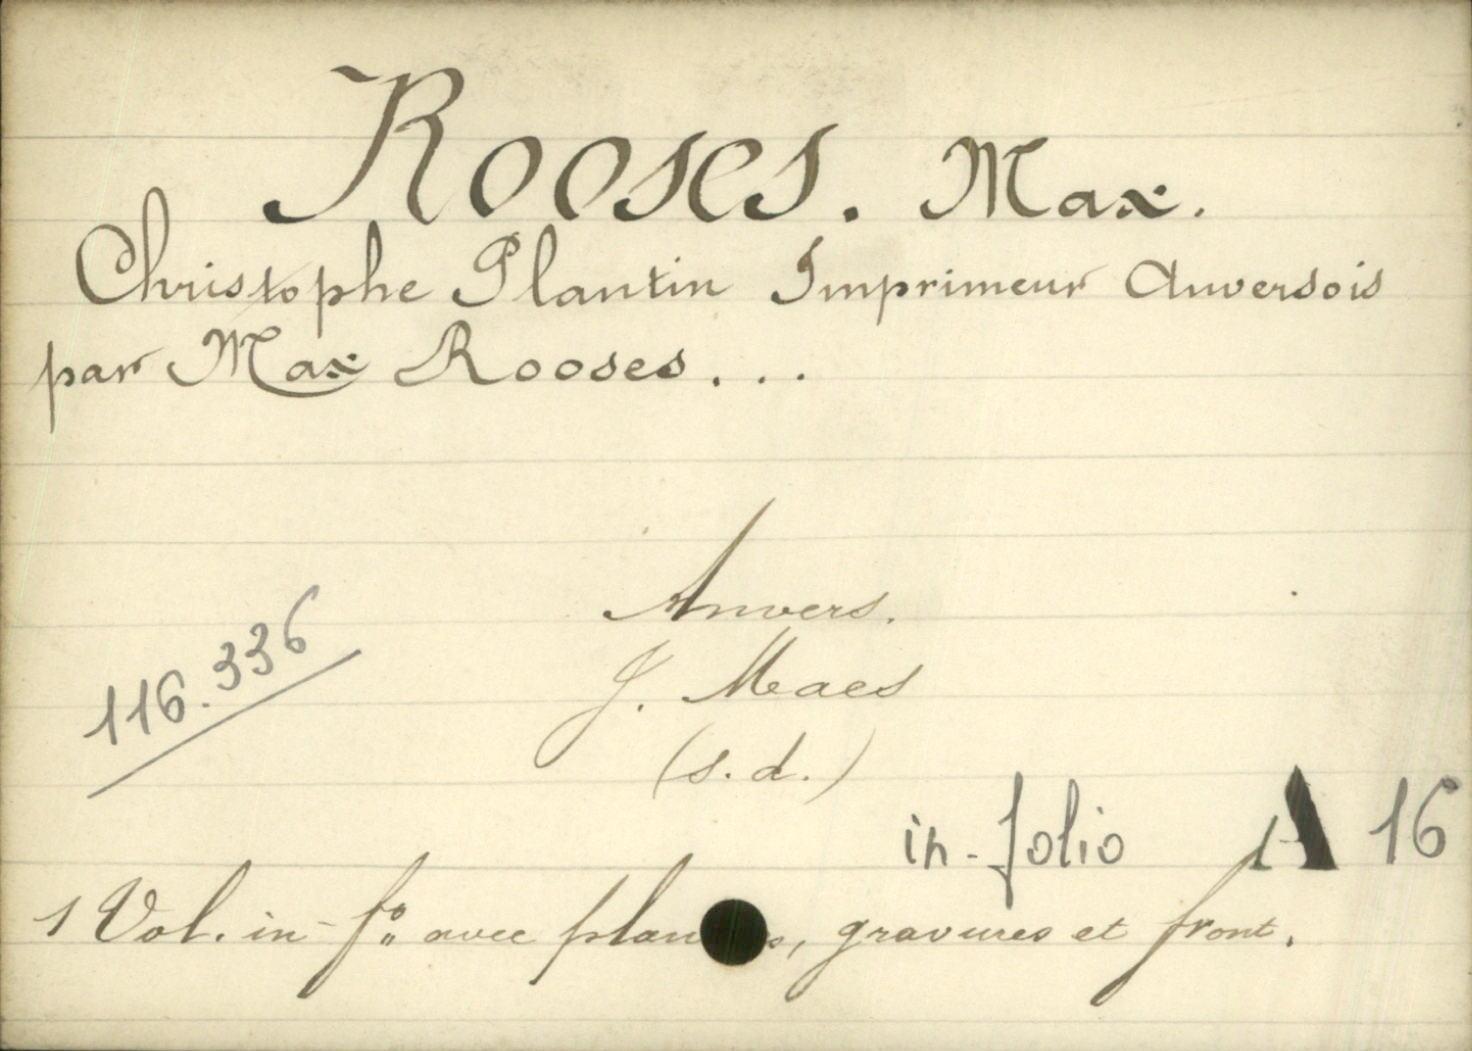 Rooses. Max.
Christophe Plantin Imprimeur Anversois
par Max Rooses...
Anvers.
J. Maes
(s. d.)
116.336
in-folio A 16
1 Vol. in-fº avec gravures et front.